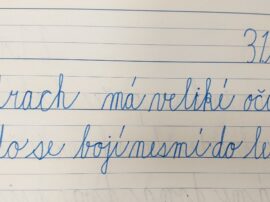 31
rach má veliké oči
do se bojí nesmí do le